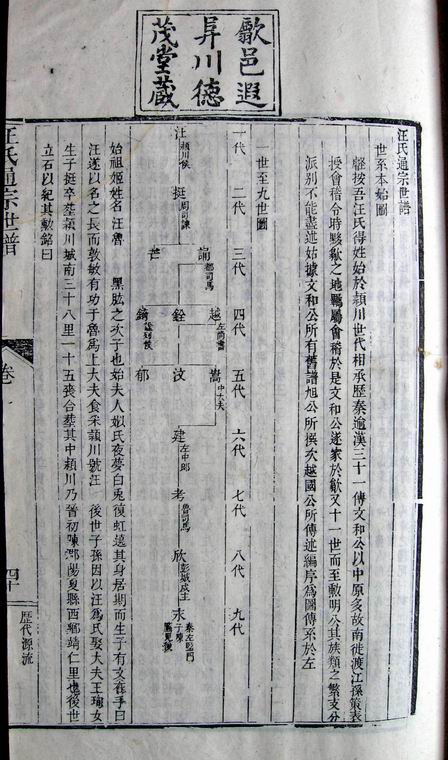 歙邑遐
昇川德
茂堂藏
汪氏通宗世譜
世系本始圖
謹按吾汪氏得姓始於潁川世代相承歷秦逾漢三十一傳文和公以中原多故南徙渡江孫策表
授會稽令時黟歙之地屬會稽於是文和公遂家於歙又十一世而至勳明公其族類之繁支分
派別不能盡述姑據文和公所有舊譜旭公所撰次越國公所傳述編序為圖傳系於左
一世至九世圖
一代
二代
三代
四代
五代
六代
七代
八代
九代
汪 潁川侯
挺 周司諫
誦 都司馬
越 左尚書
銓
嵩 中大夫
汶
郁
建 左中郎
考 魯司馬
欣 彭城成主
始祖姬姓名汪魯 黑肱之次子也始夫人姒氏夜夢白兎復虹遶其身居期而生子有文在手曰
汪遂以名之長而敦敏有功于魯為上大夫食采潁川號汪 後世子孫因以汪為氏娶大夫王瑀女
生子挺卒葬潁川城南三十八里一十五丧合葬其中潁川乃 晉初陳 陽夏縣西鄉靖仁里也後世
立石以紀其勳銘曰
汪氏通宗世譜
卷
四十
歷代源流